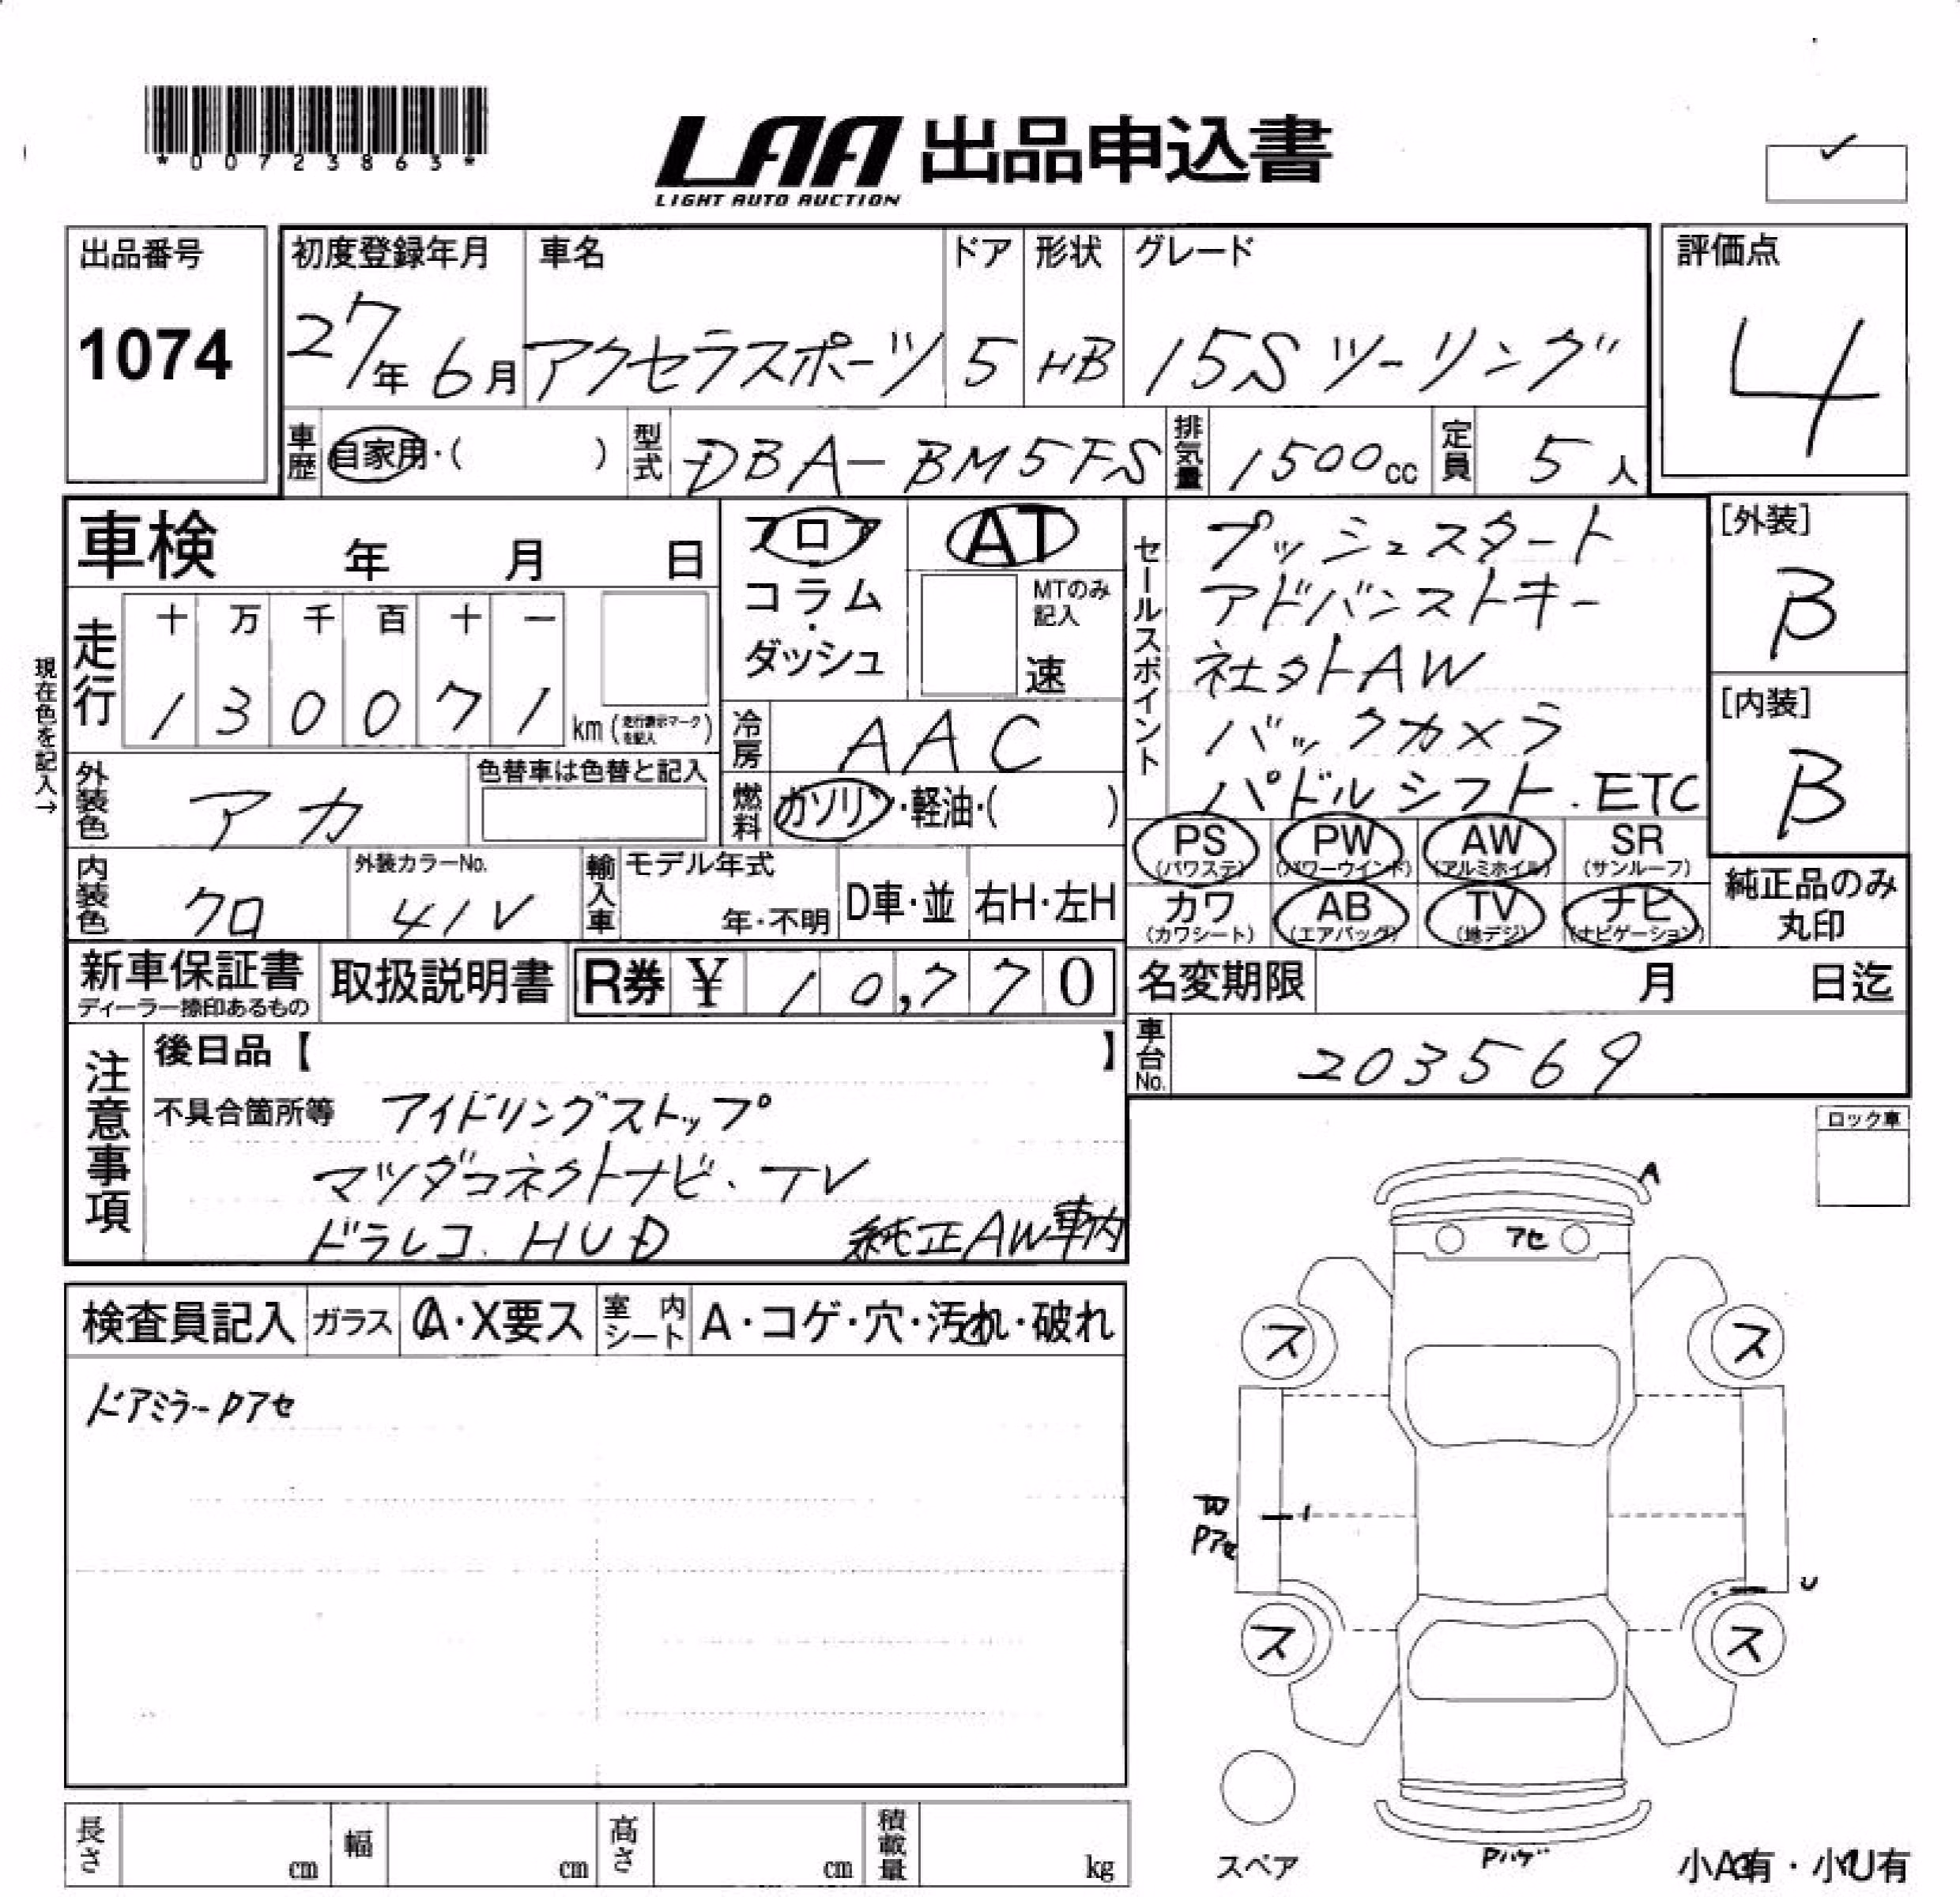 *00723863*
LAA 出品申込書
LIGHT AUTO AUCTION
出品番号
1074
初度登録年月
27年 6月
車名
アクセラスポーツ
ドア
5
形状
HB
グレード
15Sツーリング
評価点
4
車歴 自家用・( )
型式 DBA-BM5FS
排気量 1500cc
定員 5人
車検 年 月 日
走行
十 万 千 百 十 一
1 3 0 0 7 1 km (走行表示マークを記入)
現在色を記入→
外装色 アカ
色替車は色替と記入
内装色 クロ
外装カラーNo.
41V
フロア
コラム
・
ダッシュ
AT
MTのみ記入
速
冷房 AAC
燃料 ガソリン・軽油・( )
輸入車
モデル年式
年・不明
D車・並
右H・左H
セールスポイント
プッシュスタート
アドバンストキー
社外AW
バックカメラ
パドルシフト.ETC
[外装]
B
[内装]
B
PS (パワステ)
PW (パワーウインド)
AW (アルミホイル)
SR (サンルーフ)
カワ (カワシート)
AB (エアバック)
TV (地デジ)
ナビ (ナビゲーション)
純正品のみ
丸印
新車保証書
ディーラー捺印あるもの
取扱説明書
R券 ¥ 10,770
名変期限 月 日迄
車台No. 203569
注意事項
後日品【 】
不具合箇所等 アイドリングストップ
マツダコネクトナビ、TV
ドラレコ.HUD 純正AW車内
検査員記入
ガラス A・X要ス
室内シート A・コゲ・穴・汚れ・破れ
ドアミラーPアセ
ロック車
A
アセ
ス ス
1
Pアセ
U
ス ス
スペア
Pハゲ
小A有・小U有
長さ cm
幅 cm
高さ cm
積載量 kg